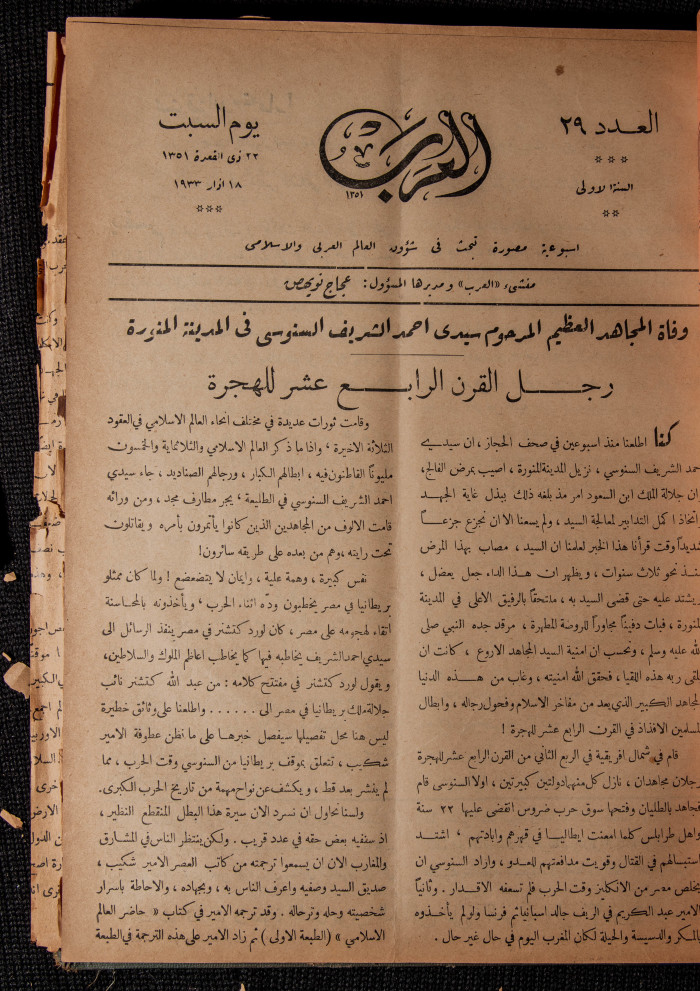 العدد ٢٩
السنة الاولى
العرب
١٣٥١
يوم السبت
٢٢ ذى القعدة ١٣٥١
١٨ اذار ١٩٣٣
اسبوعية مصورة تبحث فى شؤون العالم العربى والاسلامى
منشىء «العرب» ومديرها المسؤول: عجاج نويهض
وفاة المجاهد العظيم المرحوم سيدى احمد الشريف السنوسى فى المدينة المنورة
رجل القرن الرابع عشر للهجرة
كنا اطلعنا منذ اسبوعين في صحف الحجاز، ان سيدي
احمد الشريف السنوسي، نزيل المدينة المنورة، اصيب بمرض الفالج،
وان جلالة الملك ابن السعود امر مذ بلغه ذلك ببذل غاية الجهد
باتخاذ اكمل التدابير لمعالجة السيد، ولم يسعنا الا ان نجزع جزعاً
شديداً وقت قرأنا هذا الخبر لعلمنا ان السيد، مصاب بهذا المرض
منذ نحو ثلاث سنوات، ويظهر ان هذا الداء جعل يعضل،
ويشتد عليه حتى قضى السيد به، ملتحقاً بالرفيق الاعلى في المدينة
المنورة، فبات دفيناً مجاوراً للروضة المطهرة، مرقد جده النبي صلى
الله عليه وسلم، ونحسب ان امنية السيد المجاهد الاروع، كانت ان
يلقى ربه هذه اللقيا، فحقق الله امنيته، وغاب من هذه الدنيا
المجاهد الكبير الذي يعد من مفاخر الاسلام وفحول رجاله، وابطال
المسلمين الافذاذ في القرن الرابع عشر للهجرة!
قام في شمال افريقية في الربع الثاني من القرن الرابع عشر للهجرة
رجلان مجاهدان، نازل كل منهما دولتين كبيرتين، اولا السنوسي قام
فجاهد بالطليان وفتحها سوق حرب ضروس انقضى عليها ٢٢ سنة
واهل طرابلس كلما امعنت ايطاليا في قهرهم وابادتهم، اشتد
استبسالهم في القتال وقويت مدافعتهم للعدو، واراد السنوسي ان
يخلص مصر من الانكليز وقت الحرب فلم تسعفه الاقدار. وثانياً
الامير عبد الكريم في الريف جالد اسبانيا ثم فرنسا ولو لم يأخذوه
بالمكر والدسيسة والحيلة لكان المغرب اليوم في حال غير حال.
وقامت ثورات عديدة في مختلف انحاء العالم الاسلامي في العقود
الثلاثة الاخيرة، واذا ما ذكر العالم الاسلامي والثلاثماية والخمسون
مليوناً القاطنون فيه، ابطالهم الكبار، ورجالهم الصناديد، جاء سيدي
احمد الشريف السنوسي في الطليعة، يجر مطارف مجد، ومن ورائه
قامت الالوف من المجاهدين الذين كانوا يأتمرون بأمره ويقاتلون
تحت رايته، وهم من بعده على طريقه سائرون!
نفس كبيرة، وهمة علية، وايمان لا يتضعضع! ولما كان ممثلو
بريطانيا في مصر يخطبون ودّه اثناء الحرب، ويأخذونه بالمحاسنة
اتقاء لهجومه على مصر، كان لورد كتشنر في مصر ينفذ الرسائل الى
سيدي احمد الشريف يخاطبه فيها كما يخاطب اعاظم الملوك والسلاطين،
ويقول لورد كتشنر في مفتتح كلامه: من عبد الله كتشنر نائب
جلالة ملك بريطانيا في مصر الى ...... واطلعنا على وثائق خطيرة
ليس هنا محل تفصيلها سيفصل خبرها على ما نظن عطوفة الامير
شكيب، تتعلق بموقف بريطانيا من السنوسي وقت الحرب، مما
لم ينشر بعد قط، ويكشف عن نواح مهمة من تاريخ الحرب الكبرى.
ولسنا نحاول ان نسرد الان سيرة هذا البطل المنقطع النظير،
اذ سنفيه بعض حقه في عدد قريب. ولكن ينتظر الناس في المشارق
والمغارب الان ان يسمعوا ترجمته من كاتب العصر الامير شكيب،
صديق السيد وصفيه واعرف الناس به، وبجهاده، والاحاطة باسرار
شخصيته وحله وترحاله. وقد ترجمه الامير في كتاب «حاضر العالم
الاسلامي» (الطبعة الاولى) ثم زاد الامير على هذه الترجمة في الطبعة